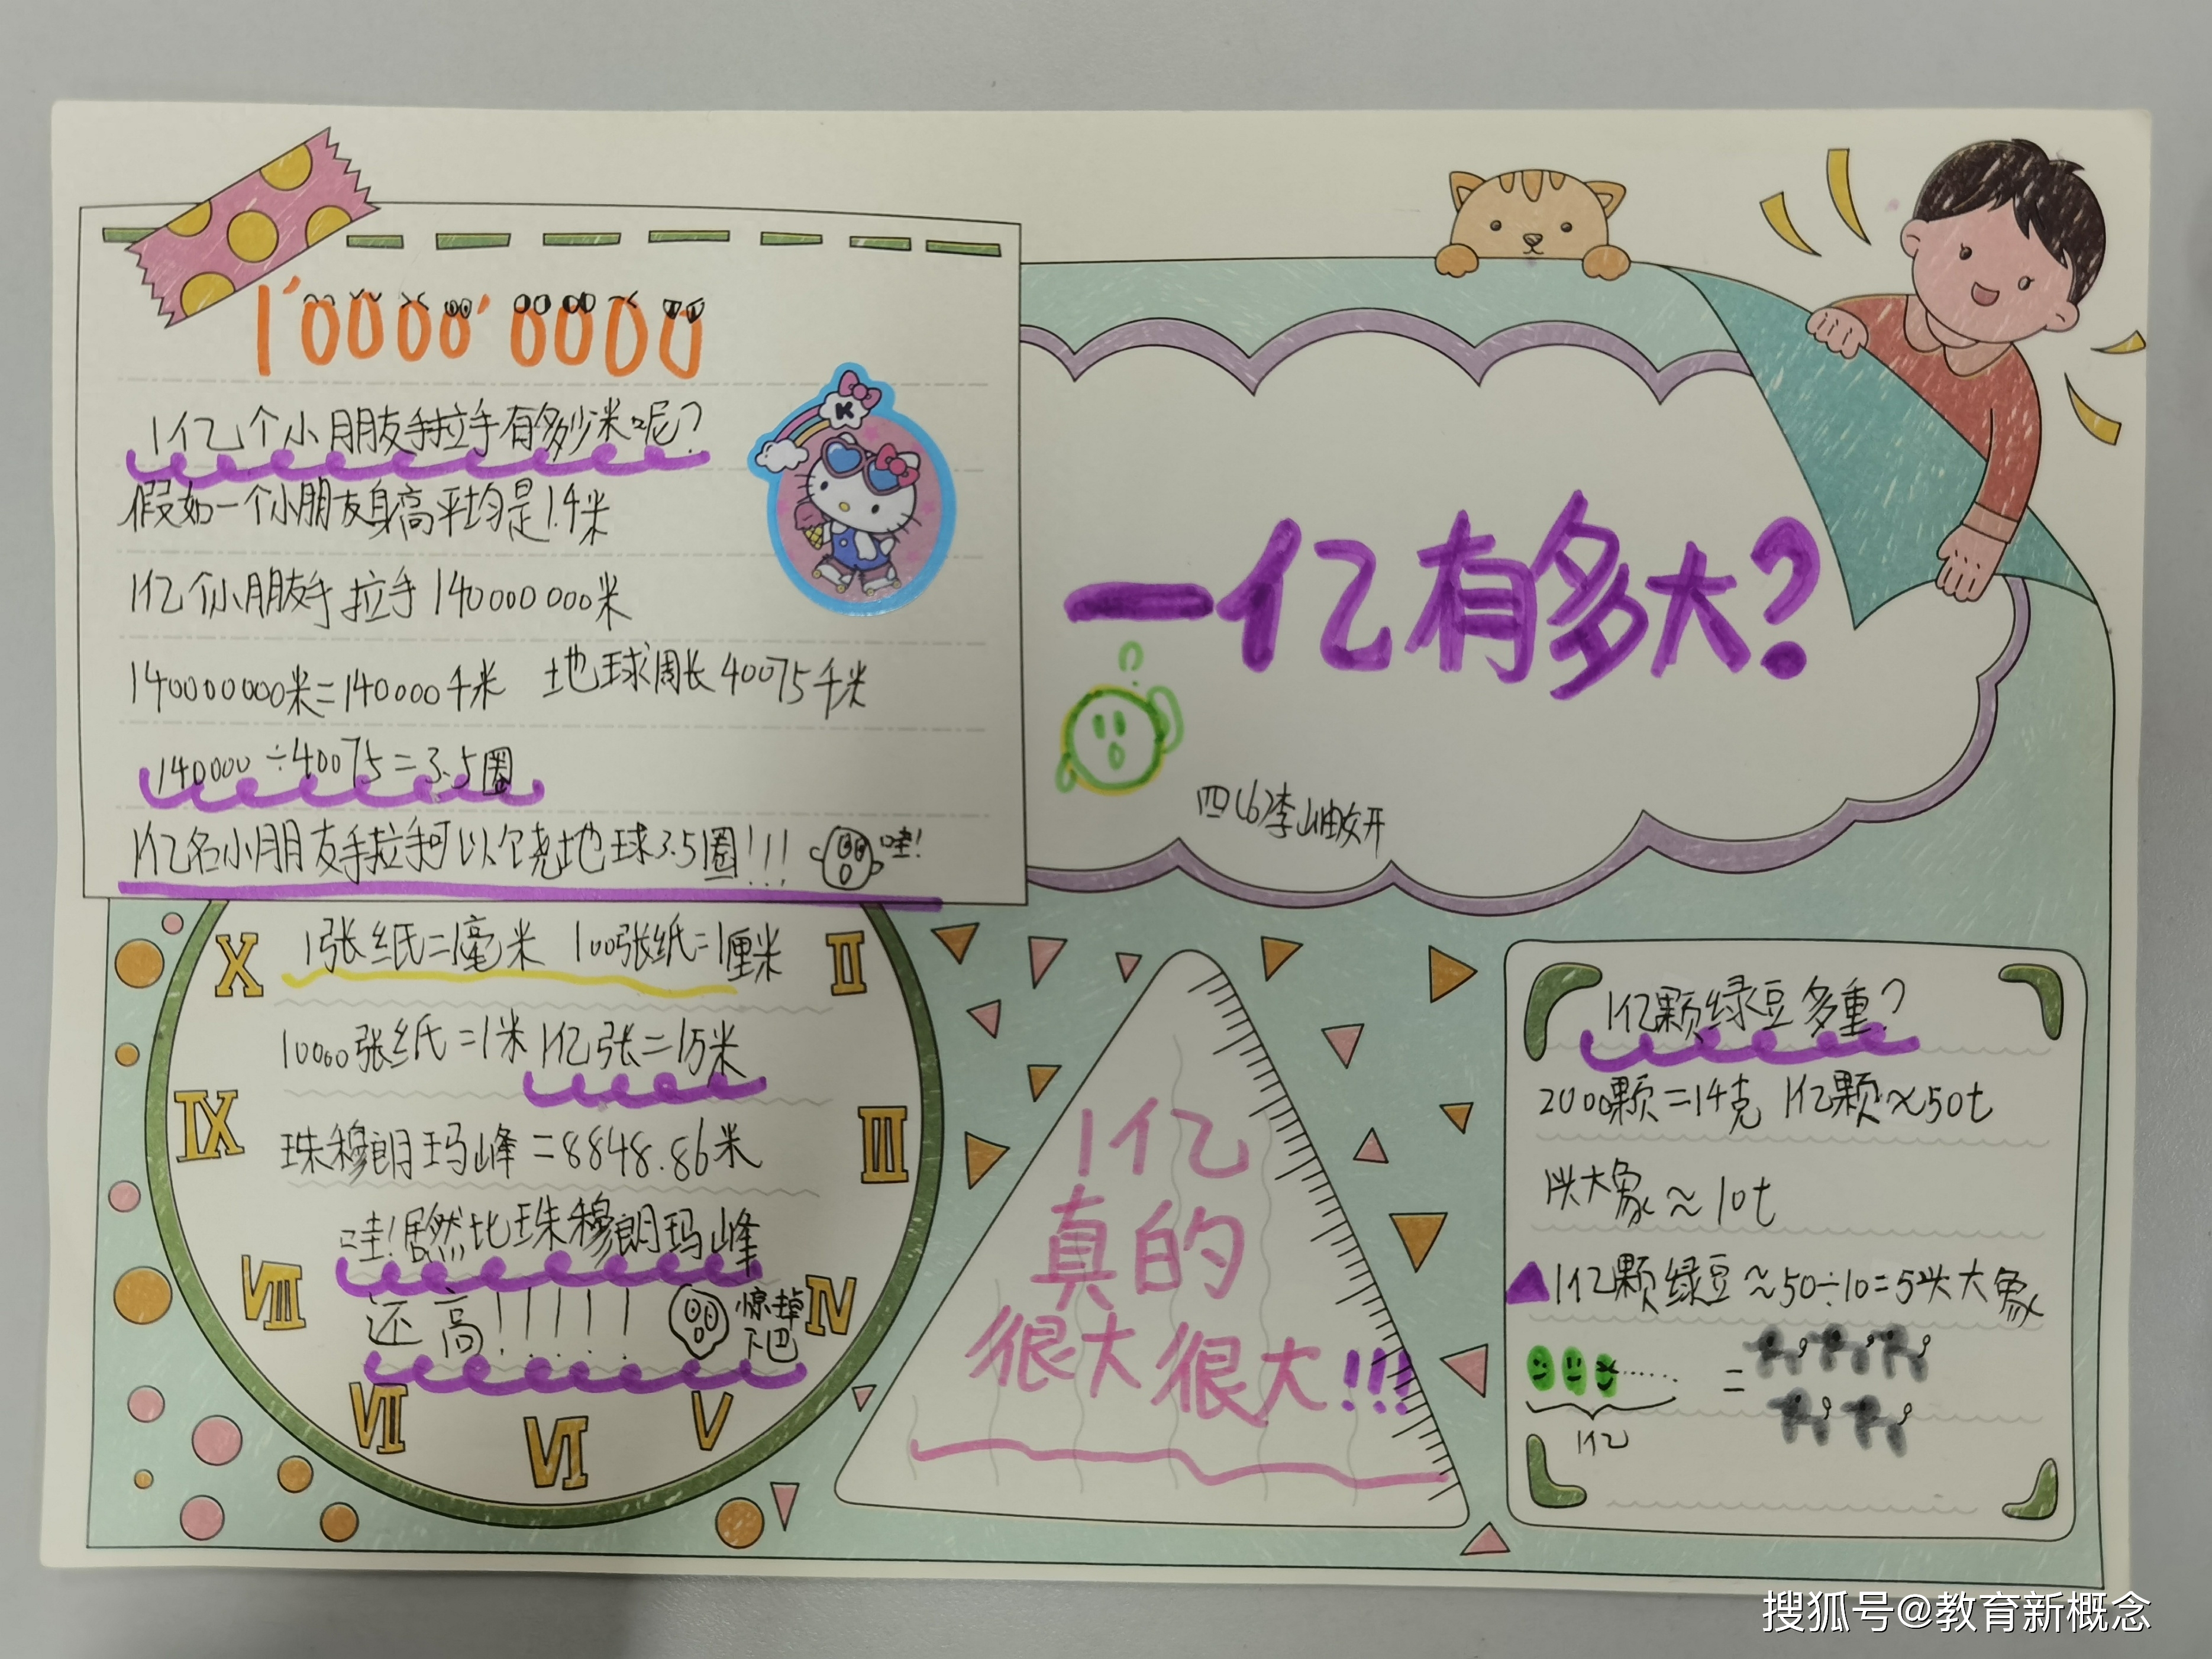 1'0000'0000
1亿个小朋友手拉手有多少米呢?
假如一个小朋友身高平均是1.4米
1亿个小朋友手拉手140000000米
140000000米=140000千米 地球周长40075千米
140000÷40075=3.5圈
1亿名小朋友手拉手可以绕地球3.5圈!!!
哇!
K
一亿有多大?
四(6)李岫妍
X
II
IX
III
VIII
IV
VII
VI
V
1张纸=1毫米 100张纸=1厘米
10000张纸=1米 1亿张=1万米
珠穆朗玛峰=8848.86米
哇!居然比珠穆朗玛峰
还高!!!!!
惊掉
下巴
1亿
真的
很大很大!!!
1亿颗绿豆多重?
2000颗=14克 1亿颗≈50t
1头大象≈10t
1亿颗绿豆≈50÷10=5头大象
=
1亿
搜狐号@教育新概念